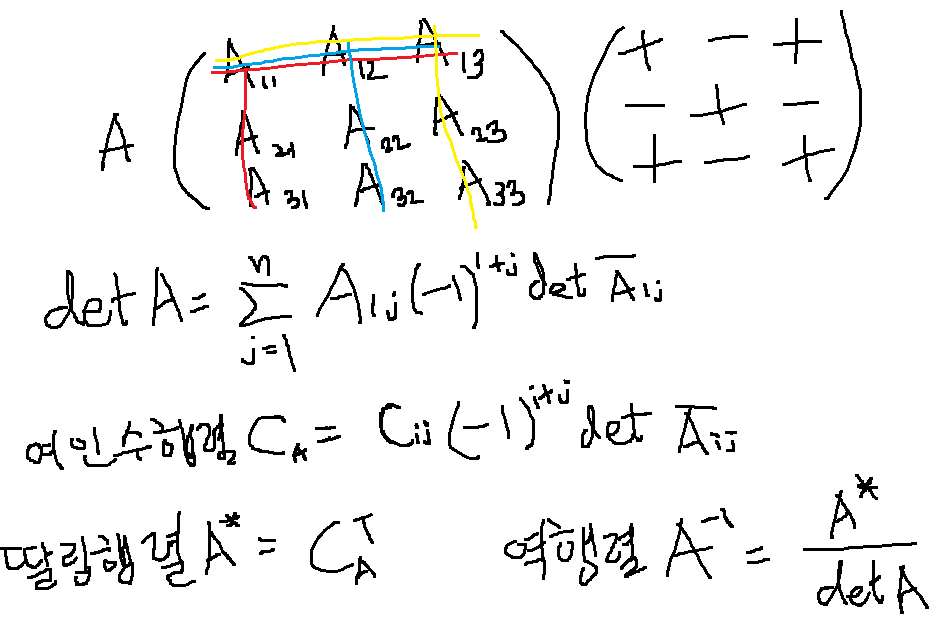 A ( A₁₁ A₁₂ A₁₃ ) ( + - + )
A₂₁ A₂₂ A₂₃ - + -
A₃₁ A₃₂ A₃₃ + - +
det A = Σ_{j=1}^{n} A₁ⱼ (-1)^{1+j} det A̅₁ⱼ
여인수행렬 C_A = C_{ij} (-1)^{i+j} det A̅_{ij}
딸림행렬 A* = C_A^T 역행렬 A⁻¹ = A* / det A